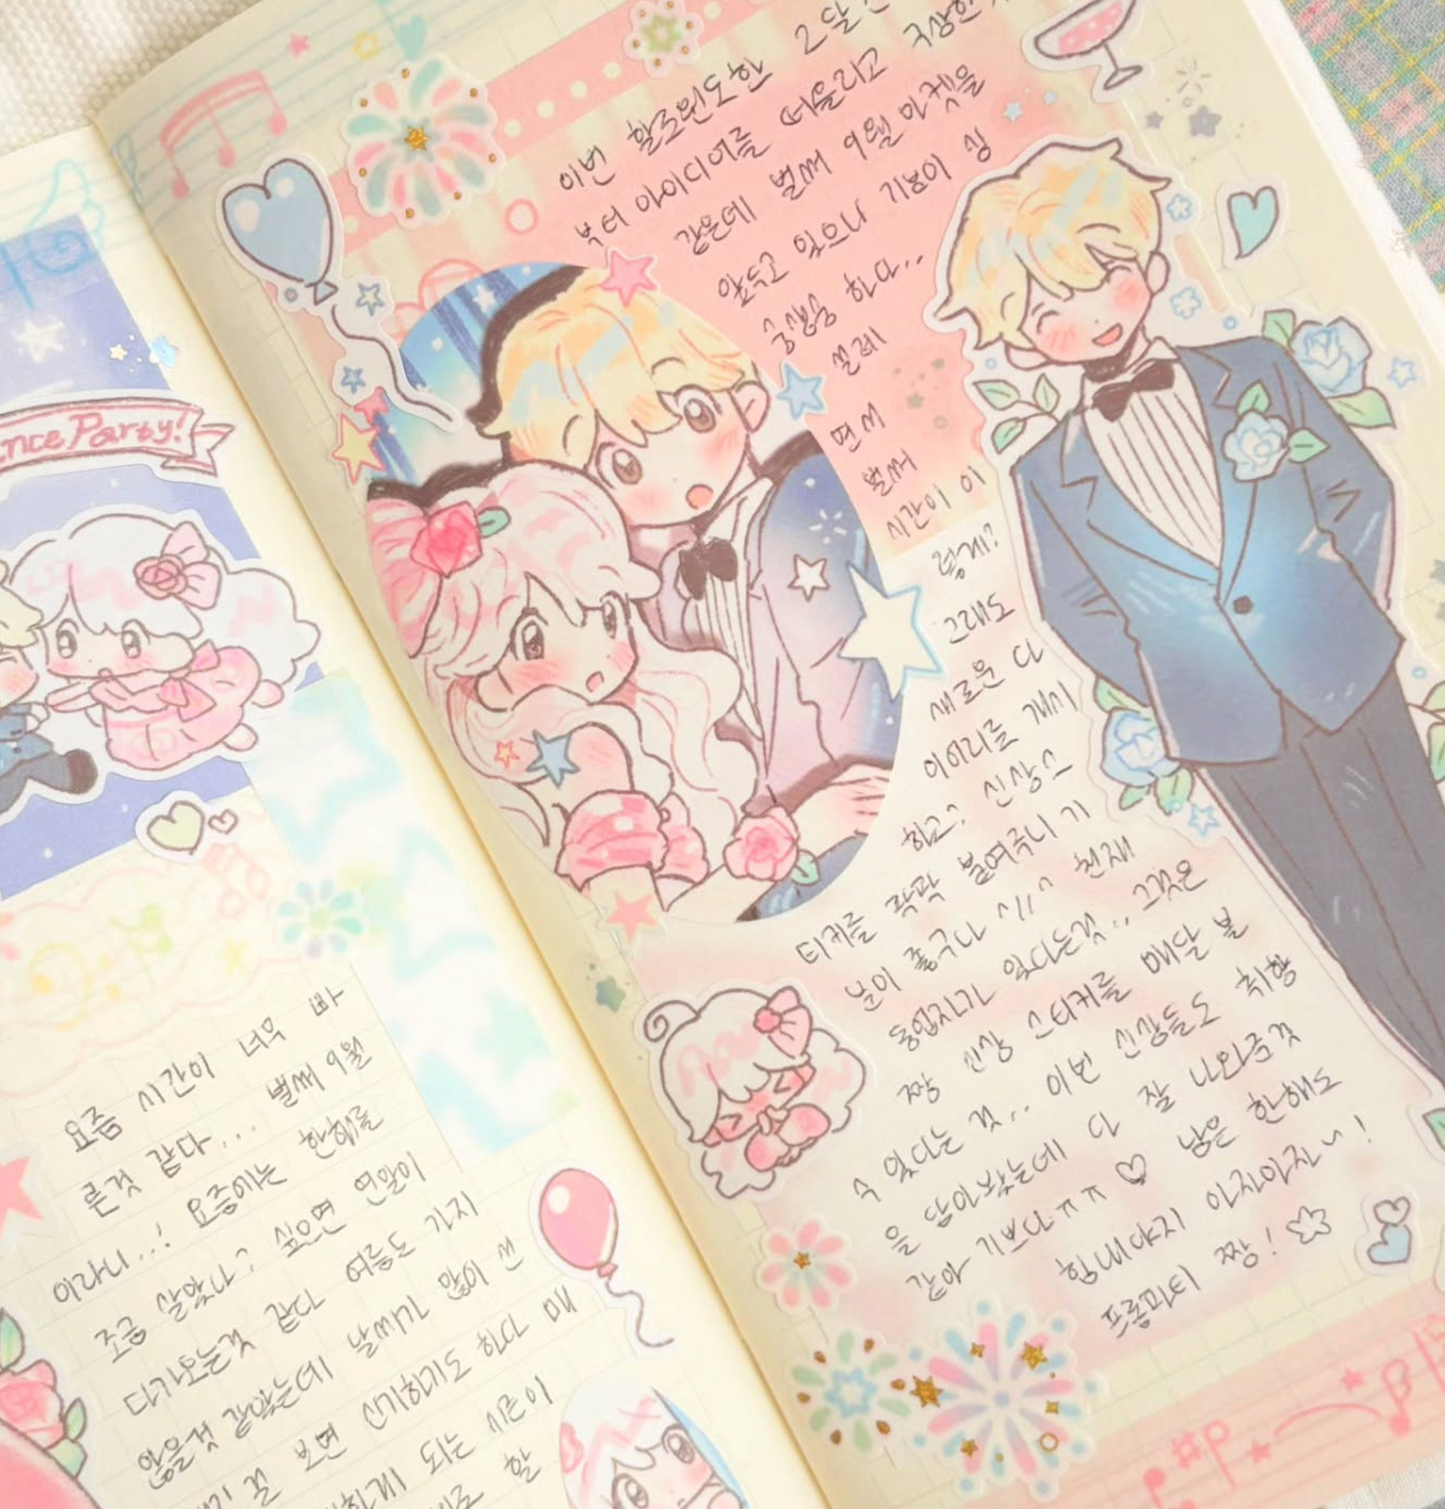 nce Party!
요즘 시간이 너무 빠
른것 같다... 벌써 9월
이라니..! 요즘에는 한해를
조금 살았나? 싶으면 연말이
다가오는것 같다 여름도 가지
않을것 같았는데 날씨가 많이 선
보면 신기하기도 하다 매
되는 시즌이
할
이번 할로윈도 한 2달
부터 아이디어를 떠올리고 구상한
같은데 벌써 9월 마켓을
앞두고 있으니 기분이 싱
숭생숭 하다..
설레
면서
벌써
시간이 이
렇게?
그래도
새로운 다
이어리를 개시
하고? 신상스
티커를 팍팍 붙여주니 기
분이 좋구나 시기^ 현재
동업자가 있다는것.. 그것은
짱 신상 스티커를 매달 볼
수 있다는 것.. 이번 신상들도 취향
을 담아봤는데 다 잘 나와준것
같아 기쁘다ㅠㅠ ♡ 남은 한해도
힘내야지 아자아자~!
프롬피터 짱! ☆